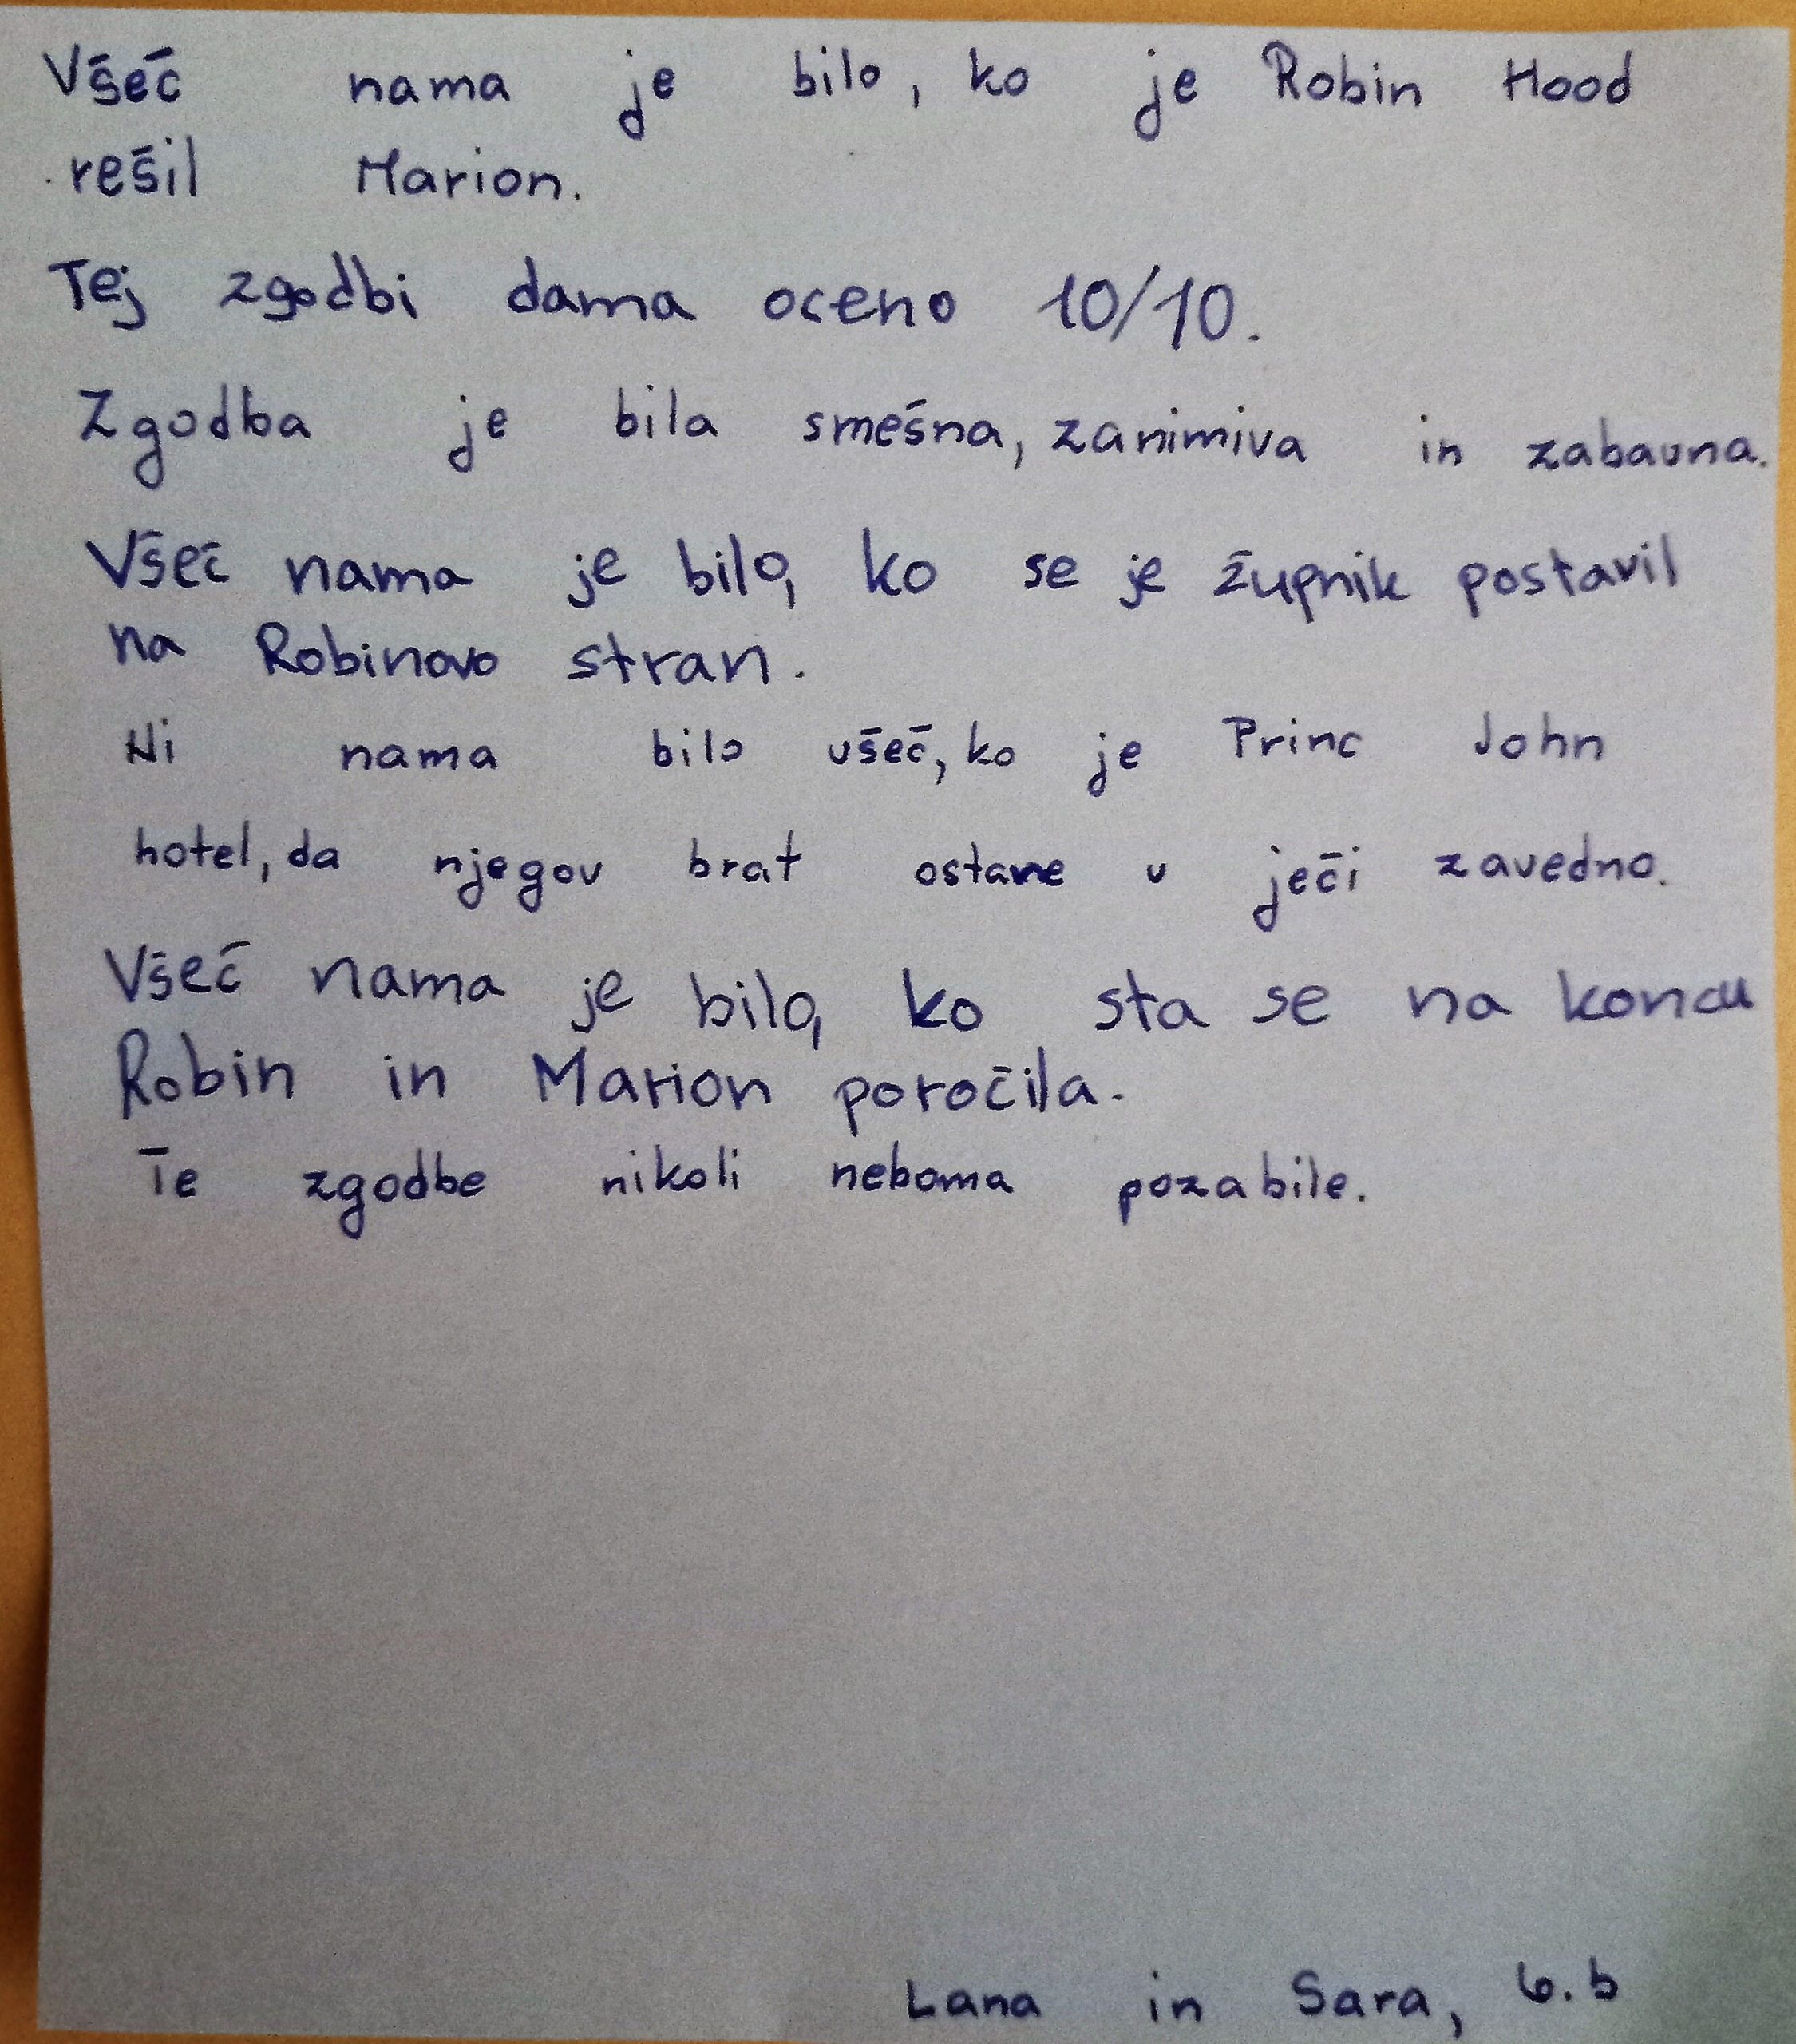 Všeč nama je bilo, ko je Robin Hood
rešil Marion.
Tej zgodbi dama oceno 10/10.
Zgodba je bila smešna, zanimiva in zabavna.
Všeč nama je bilo, ko se je župnik postavil
na Robinovo stran.
Ni nama bilo všeč, ko je Princ John
hotel, da njegov brat ostane v ječi zavedno.
Všeč nama je bilo, ko sta se na koncu
Robin in Marion poročila.
Te zgodbe nikoli neboma pozabile.
Lana in Sara, 6.b